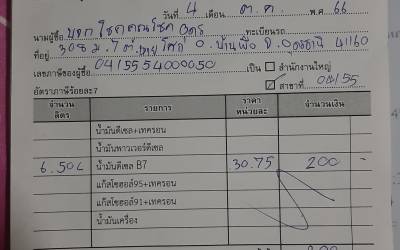 วันที่ 4 เดือน ต.ค. พ.ศ. 66
นามผู้ซื้อ บจก โชคคุณโชค อุดร ทะเบียนรถ
ที่อยู่ 308 ม.7 ต. อ. บ้านผือ จ.อุดรธานี 41160
เลขภาษีของผู้ซื้อ 0415554000050 เป็น สำนักงานใหญ่
อัตราภาษีร้อยละ7 สาขาที่ 00155
จำนวนลิตร รายการ ราคาหน่วยละ จำนวนเงิน
น้ำมันดีเซล+เทครอน
น้ำมันพาวเวอร์ดีเซล
6.50L น้ำมันดีเซล B7 30.75 200 -
แก๊สโซฮอล์95+เทครอน
แก๊สโซฮอล์91+เทครอน
น้ำมันเครื่อง